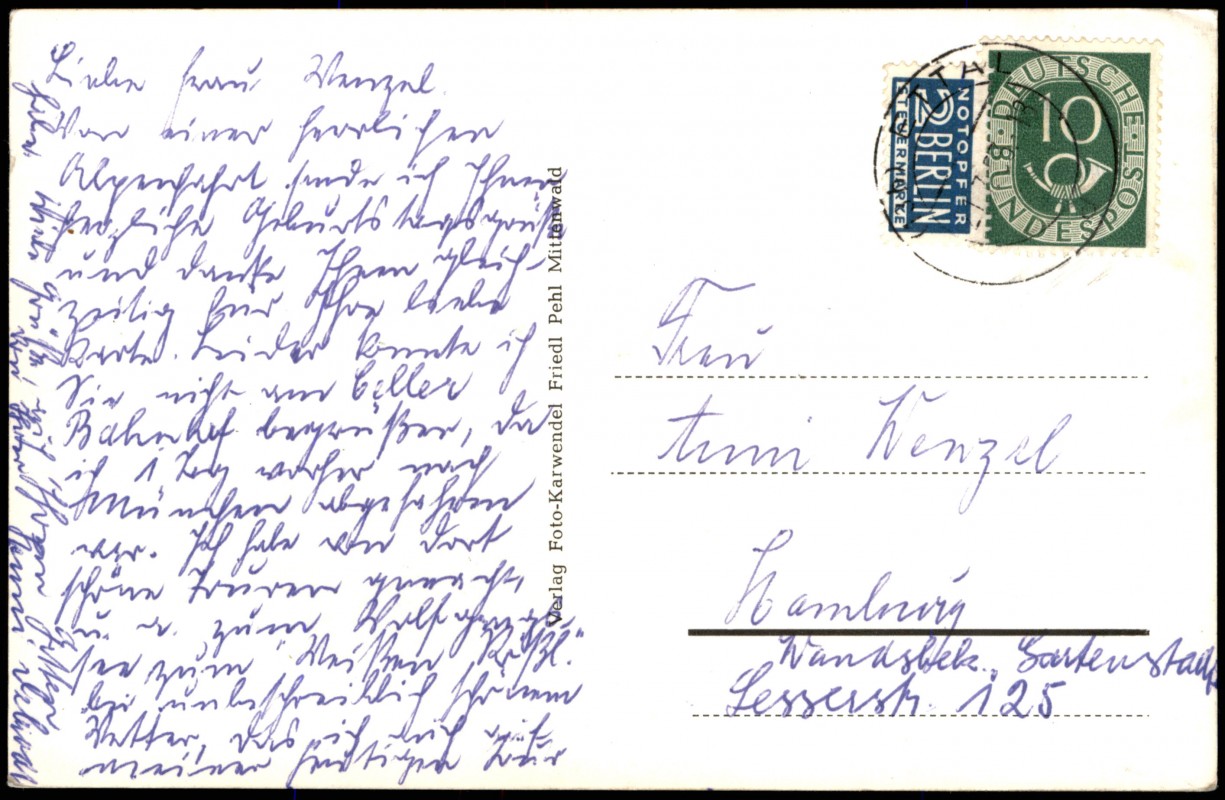 Liebe Frau Wenzel.
Von einer herrlichen
Alpenfahrt sende ich Ihnen
herzliche Geburtstagsgrüße
und danke Ihnen gleich-
zeitig für Ihre liebe
Karte. Leider konnte ich
Sie nicht am Celler
Bahnhof begrüßen, da
ich 1 Tag vorher nach
München abgefahren
war. Ich habe von dort
schöne Touren gemacht,
u. a. zum Wolfgang
see zum "Weißen Rößl."
bei unbeschreiblich schönem
Wetter, das ich auch auf
meiner heutigen Tour
habe. Viele Grüße,
Verlag Foto-Karwendel Friedl Pehl Mittenwald
NOTOPFER
2 BERLIN
STEUERMARKE
DEUTSCHE BUNDESPOST
10
TTAL
Frau
Anni Wenzel
Hamburg
Wandsbek. Gartenstadt
Lesserstr. 125